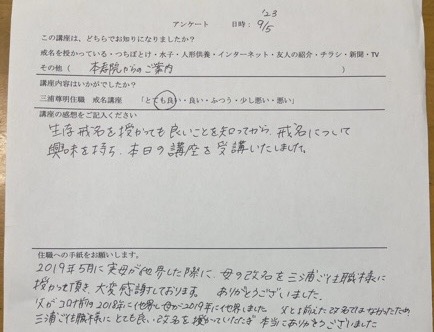 '23
アンケート 日時: 9/5
この講座は、どちらでお知りになりましたか?
戒名を授かっている・つちぼとけ・水子・人形供養・インターネット・友人の紹介・チラシ・新聞・TV
その他( 本寿院からのご案内 )
講座内容はいかがでしたか?
三浦尊明住職 戒名講座 「とても良い・良い・ふつう・少し悪い・悪い」
講座の感想をご記入ください
生存戒名を授かっても良いことを知ってから、戒名について
興味を持ち、本日の講座を受講いたしました。
住職への手紙をお願いします。
2019年5月に実母が他界した際に、母の改名を三浦ご住職様に
授かって頂き、大変感謝しております。ありがとうございました。
父がコロナ前の2018年に他界し母が2019年に他界しました。父とは揃えた改名ではなかったため
三浦ご住職様にとても良い改名を授かっていただき本当にありがとうございました